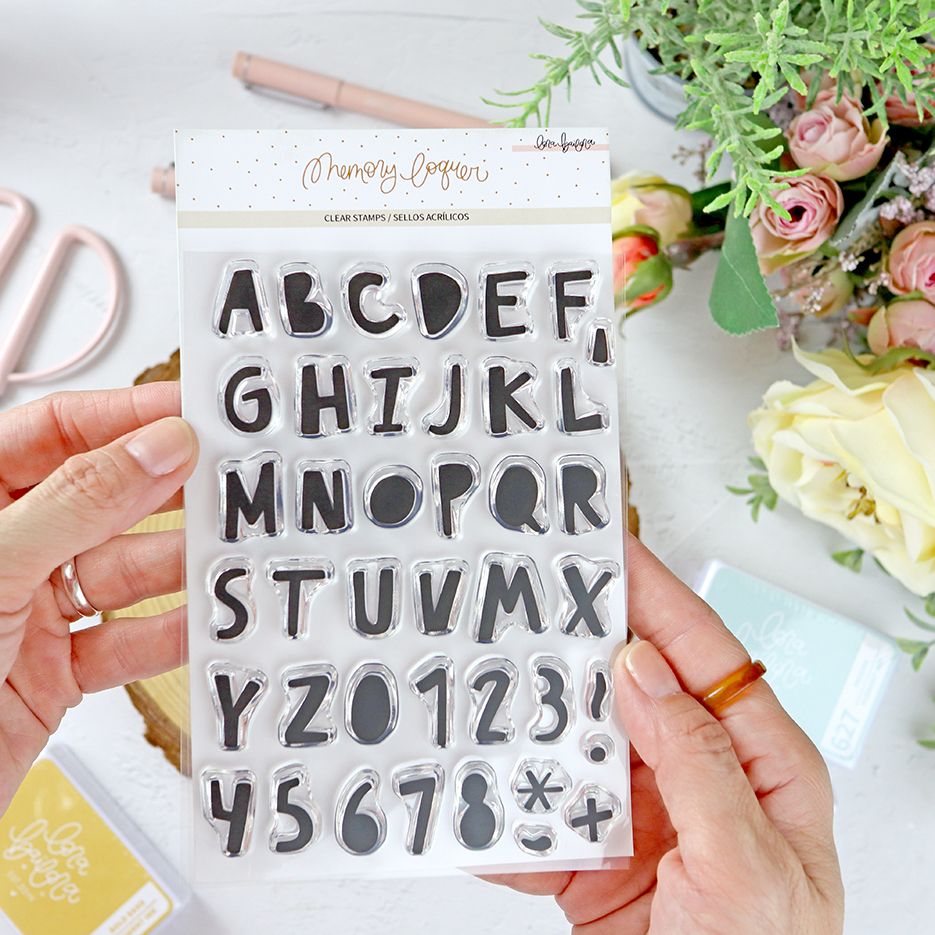 lora bailora
Memory loquer
CLEAR STAMPS / SELLOS ACRÍLICOS
A B C D E F
G H I J K L
M N O P Q R
S T U V M X
Y Z 0 1 2 3 !
4 5 6 7 8 * +
lora
bailora
lora
bailora
627